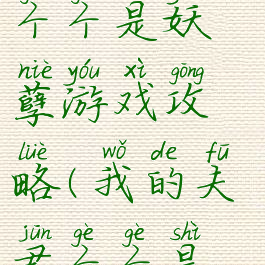 个个是妖
niè yóu xì gōng
孽游戏攻
lüè wǒ de fū
略(我的夫
jūn gè gè shì
君个个是